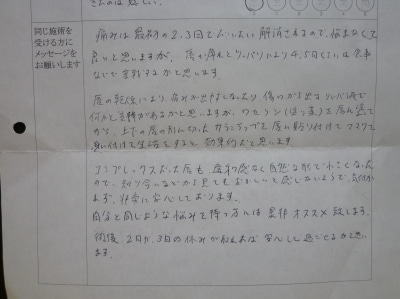 さんのは嬉しい。
同じ施術を
受ける方に
メッセージを
お願いします
痛みは最初の2.3日でだいたい解消されるので、悩まなくて
良いと思いますが、唇の腫れとツッパリにより4.5日くらいは食事
などで苦労するかと思います。
唇の乾燥により痛みが出やすくなったり傷口から出る
何かと支障があるかと思いますが、ワセリン(ぼう薬)を唇に塗って
から、上下の唇の形に切ったサランラップを唇に貼り付けてマスクで
生活をすると 効果的だと思います。
コンプレックスだった唇も違和感なく自然な形で小さくなった
ので、知り合いなどから見てもおかしいと感じないようで、気付かれ
ず、非常に安心しております。
自分と同じような悩みを持つ方には是非オススメ致します。
術後、2日か、3日の休みが取れれば安心して過ごせるかと思い
ます。